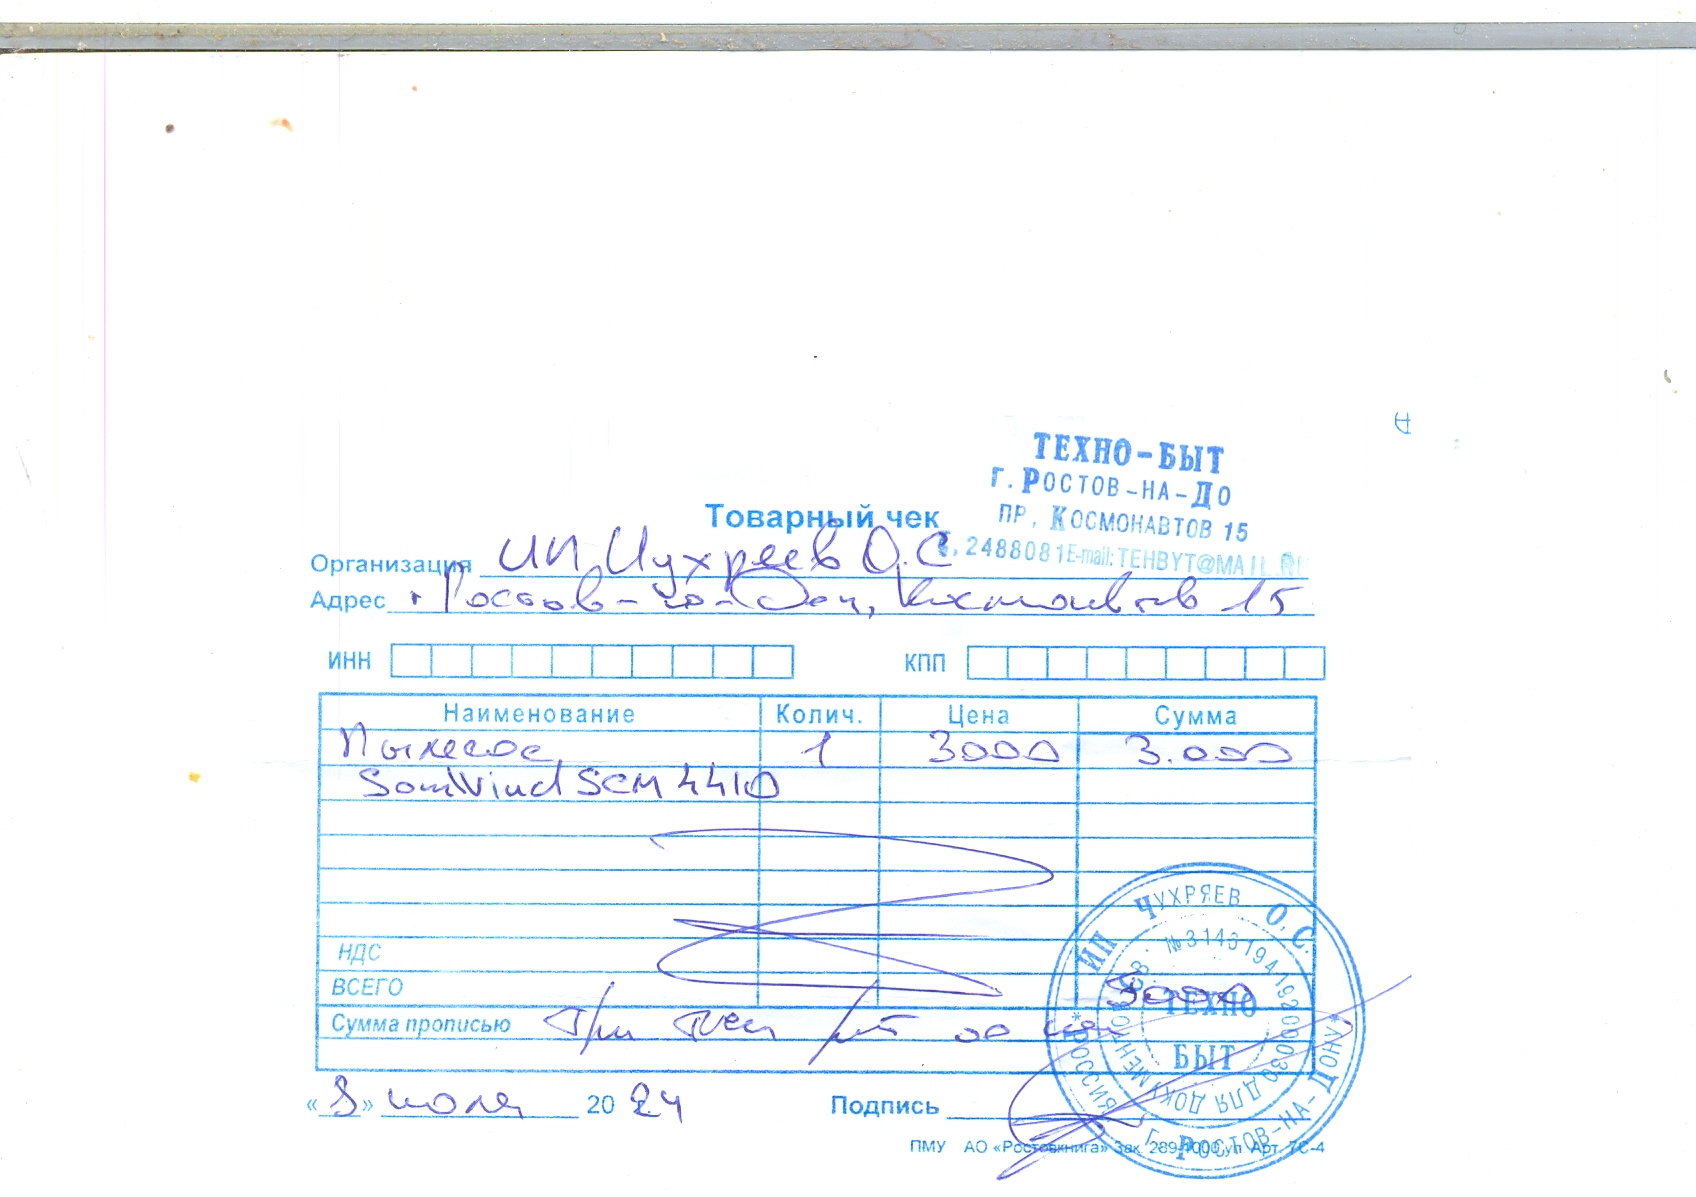 ТЕХНО-БЫТ
Г. РОСТОВ-НА-ДО
ПР, КОСМОНАВТОВ 15
2488081 E-mail: TEHBYT@MAIL.RU
Товарный чек
Организация ИП Чухряев О.С
Адрес г Ростов-на-Дону, Космонавтов 15
ИНН КПП
Наименование Колич. Цена Сумма
Пылесос 1 3000 3.000
SCM 4410
НДС
ВСЕГО 3000
Сумма прописью Три 00
« » июля 20 24 Подпись
ПМУ АО «Ростовкнига» Зак. Арт. 7С-4
ИП ЧУХРЯЕВ О.С.
*РОССИЯ Г. РОСТОВ-НА-ДОНУ*
ДЛЯ ДОКУМЕНТОВ
ТЕХНО
БЫТ